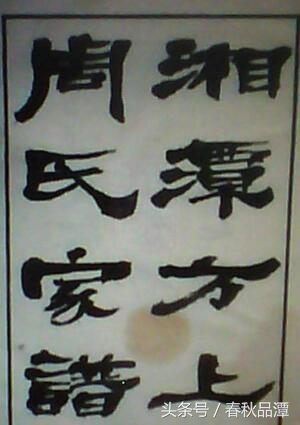 湘潭方上
周氏家譜
头条号/春秋品潭